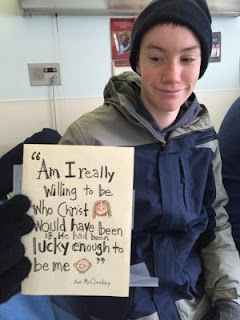 “Am I really
willing to be
who Christ
would have been
is He had been
lucky enough to
be me ”
Sue McCloskey